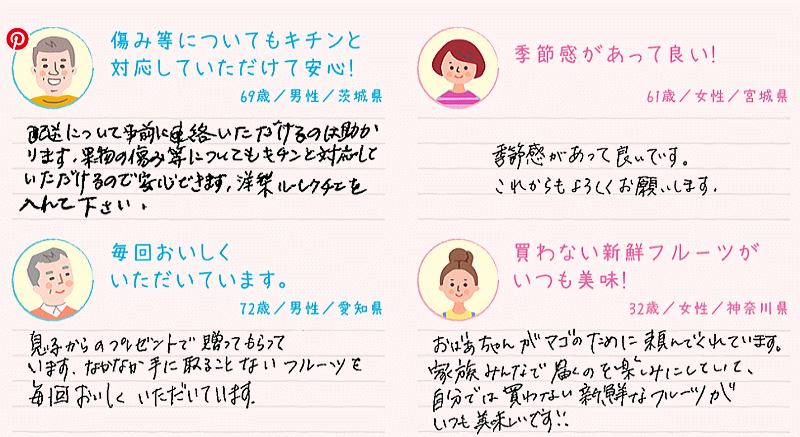 傷み等についてもキチンと
対応していただけて安心!
69歳／男性／茨城県
配送について事前に連絡いただけるのは助か
ります。果物の傷み等についてもキチンと対応して
いただけるので安心できます。洋梨ルレクチエを
入れて下さい。
季節感があって良い!
61歳／女性／宮城県
季節感があって良いです。
これからもよろしくお願いします。
毎回おいしく
いただいています。
72歳／男性／愛知県
息子からのプレゼントで贈ってもらって
います。なかなか手に取ることないフルーツを
毎回おいしくいただいています。
買わない新鮮フルーツが
いつも美味!
32歳／女性／神奈川県
おばあちゃんがマゴのために頼んでくれています。
家族みんなで届くのを楽しみにしていて、
自分では買わない新鮮なフルーツが
いつも美味しいです!!